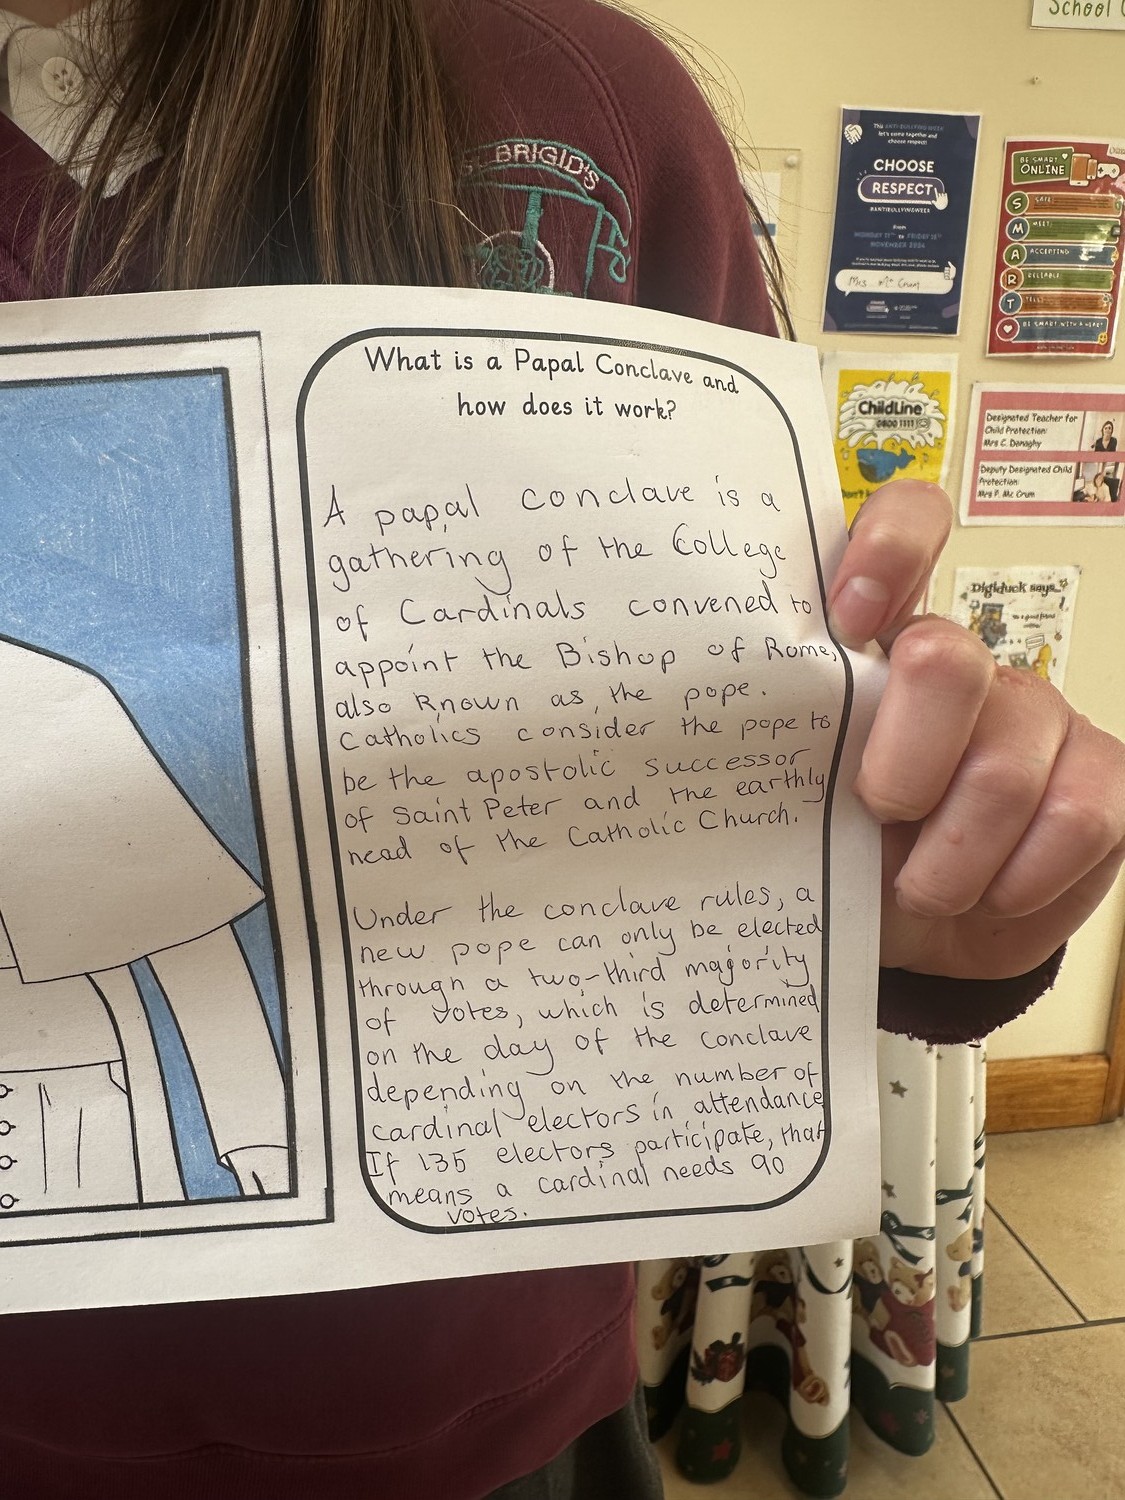 School
ST. BRIGID'S
This ANTI-BULLYING WEEK
let's come together and
choose respect!
CHOOSE
RESPECT
#ANTIBULLYINGWEEK
From
MONDAY 11TH to FRIDAY 15TH
NOVEMBER 2024
Mrs Mc Crum
BE SMART
ONLINE
S SAFE:
M MEET:
A ACCEPTING
R RELIABLE:
T TELL:
BE SMART WITH A HEART
ChildLine
0800 1111
Designated Teacher for
Child Protection:
Mrs C. Donaghy
Deputy Designated Child
Protection:
Mrs P. Mc Crum
Digiduck says...
What is a Papal Conclave and
how does it work?
A papal conclave is a
gathering of the College
of Cardinals convened to
appoint the Bishop of Rome,
also known as the pope.
Catholics consider the pope to
be the apostolic successor
of Saint Peter and the earthly
head of the Catholic Church.
Under the conclave rules, a
new pope can only be elected
through a two-third majority
of votes, which is determined
on the day of the conclave
depending on the number of
cardinal electors in attendance
If 135 electors participate, that
means a cardinal needs 90
votes.